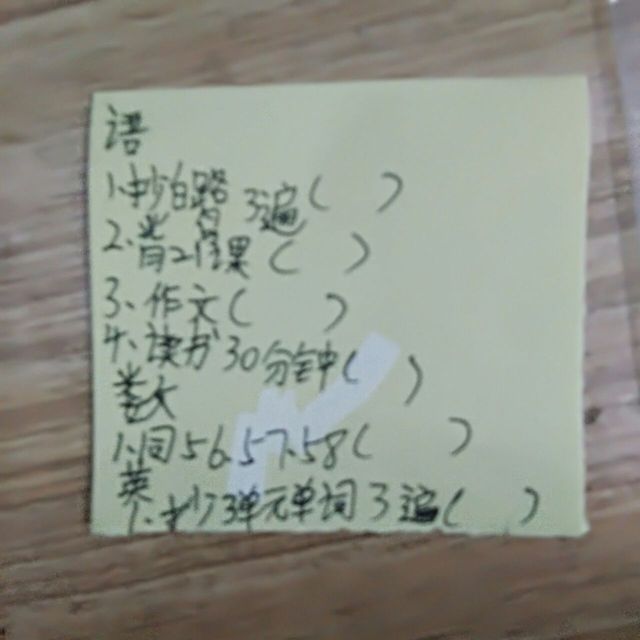 语
1、抄白鹭3遍(  )
2、背2 课(  )
3、作文(  )
4、读书30分钟(  )
数
1、同56、57、58(  )
英
1、抄3单元单词3遍(  )